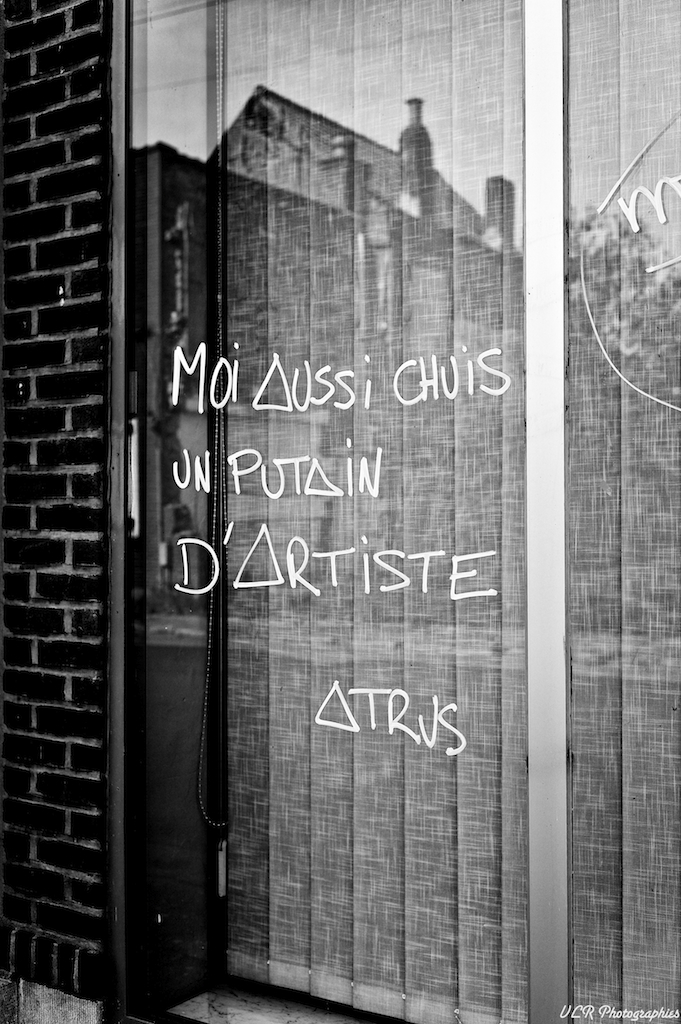 MOI AUSSI CHUIS
UN PUTAIN
D'ARTISTE
ATRUS
m
ULR Photographies